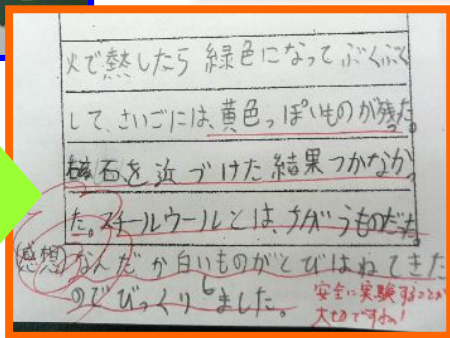 火で熱したら緑色になってぶくぶく
して、さいごには、黄色っぽいものが残った。
磁石を近づけた結果つかなかっ
た。スチールウールとは、ちがうものだった。
感想 なんだか白いものがとびはねてきた
のでびっくりしました。
安全に実験することが
大切ですね!